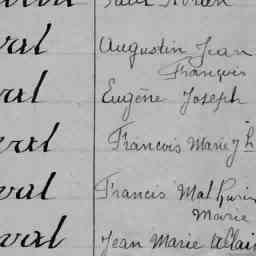 val Augustin Jean
François
val Eugène Joseph
val Francois Marie
val Francis Mathurin
Marie
val Jean Marie Allain